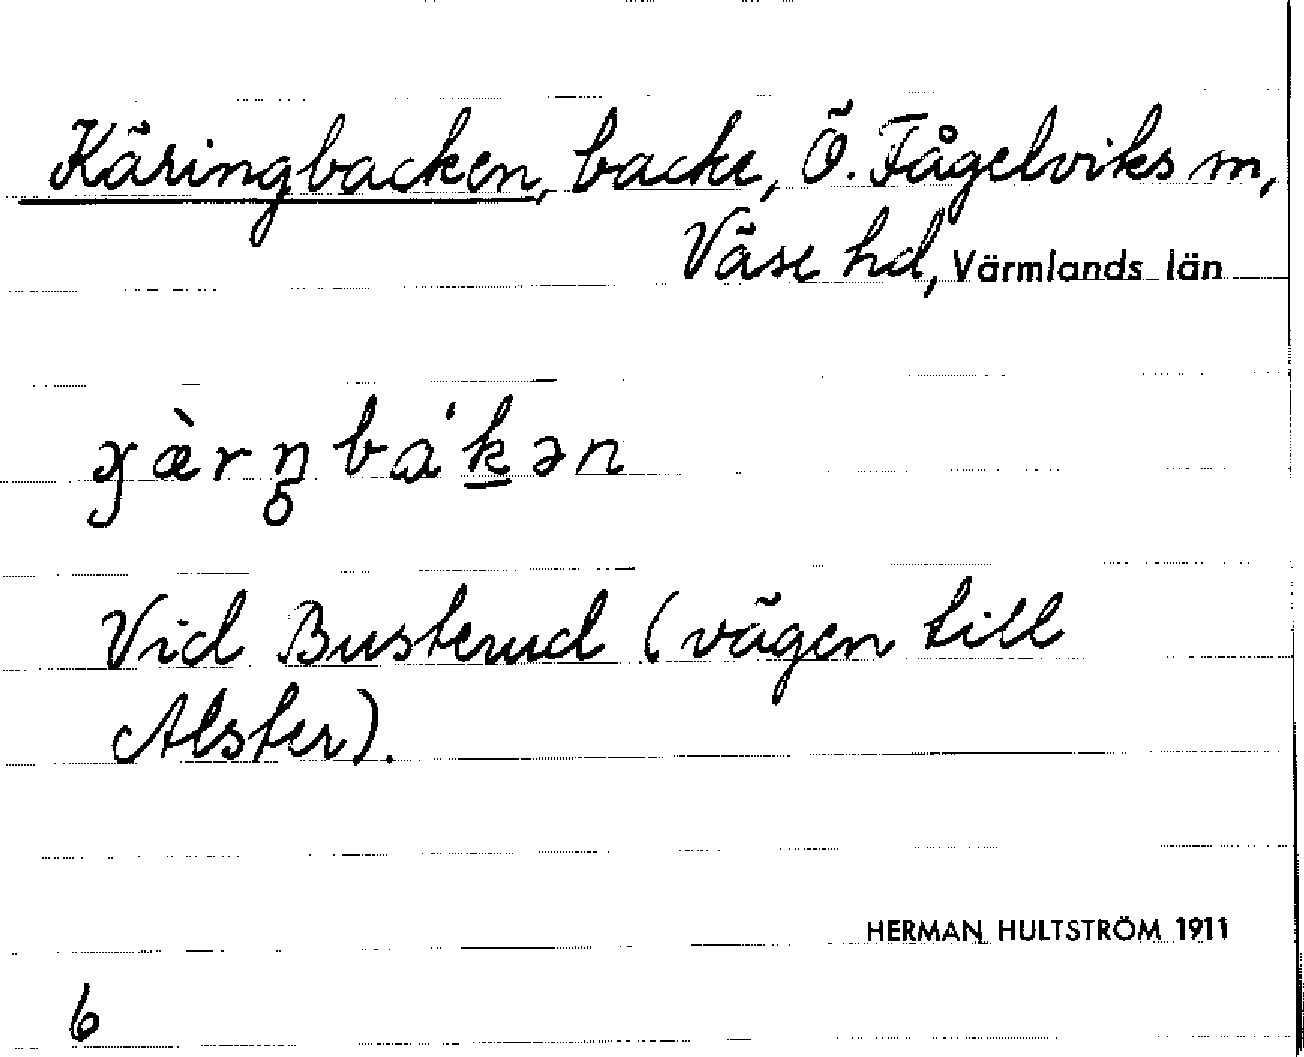 Käringbacken, backe, Ö. Fågelviks sn,
Väse hd, Värmlands län
ɟæ̀rŋ̥bá'k̲ən
Vid Busterud (vägen till
Alster).
HERMAN HULTSTRÖM 1911
6